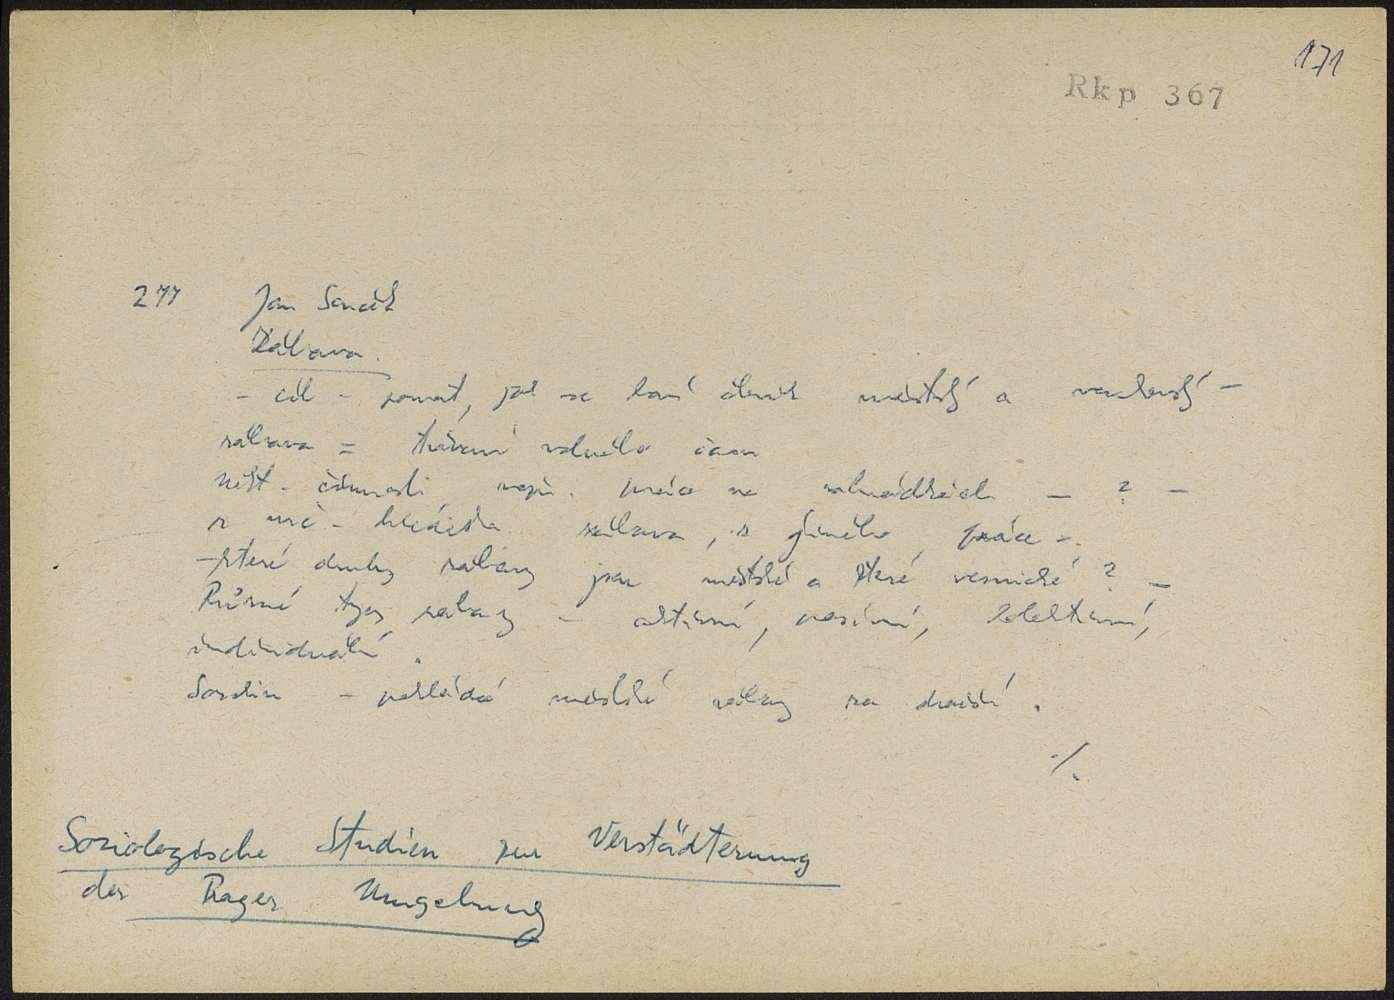 171
Rkp 367
277 Jan
Zábava.
- cíl - poznat, jak se baví člověk městský a venkovský -
zábava = trávení volného času
někt. činnosti, např. práce na zahrádkách - ? -
z urč. hlediska zábava, z jiného práce -.
- které druhy zábavy jsou městské a které vesnické ? -
Různé typy zábavy - aktivní, pasivní, kolektivní,
individuální.
- pokládá městské zábavy za
./.
Soziologische Studien zur Verstädterung
der Prager Umgebung